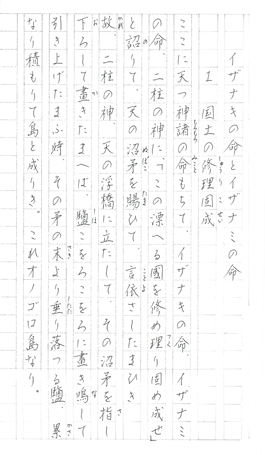 イザナキの命とイザナミの命
1 国土の修理固成
ここに天つ神諸の命もちて、イザナキの命、イザナミ
の命、二柱の神に、「この漂へる國を修め理り固め成せ」
と詔りて、天の沼矛を賜ひて、言依さしたまひき
故、二柱の神、天の浮橋に立たして、その沼矛を指し
下ろして畫きたまへば、鹽こをろこをろに畫き鳴して
引き上げたまふ時、その矛の末より垂り落つる鹽、累
なり積もりて島と成りき。これオノゴロ島なり。